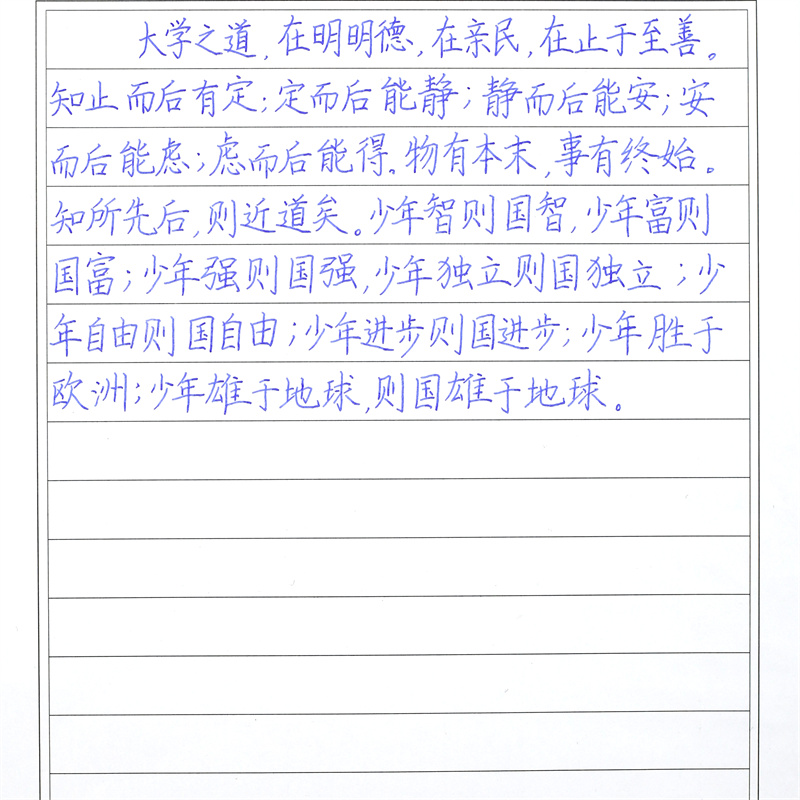 大学之道,在明明德,在亲民,在止于至善。
知止而后有定;定而后能静;静而后能安;安
而后能虑;虑而后能得。物有本末,事有终始。
知所先后,则近道矣。少年智则国智,少年富则
国富;少年强则国强,少年独立则国独立;少
年自由则国自由;少年进步则国进步;少年胜于
欧洲;少年雄于地球,则国雄于地球。